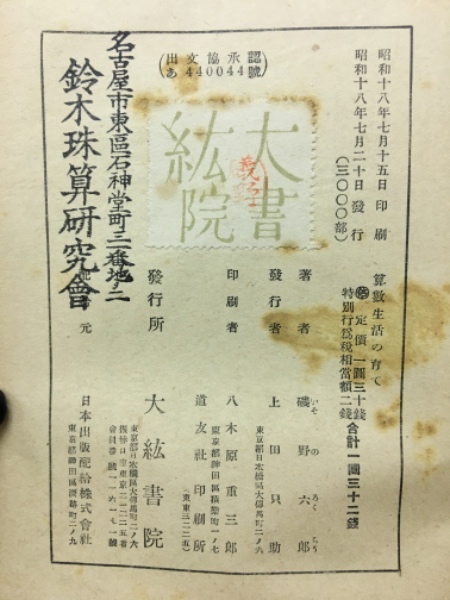 昭和十八年七月十五日印刷
昭和十八年七月二十日發行
（三〇〇〇部）
（出文協承認
あ440044號）
大書
紘院
算數生活の育て
㊞定價一圓三十錢
特別行爲税相當額二錢
合計一圓三十二錢
著者 磯野六郎
いそのろくらう
發行者 上田只助
東京都日本橋區大傳馬町二ノ六
印刷者 八木原重三郎
道友社印刷所
（東東三二二五）
發行所 大紘書院
東京都日本橋區大傳馬町二ノ六
元 日本出版配給株式會社
東京都神田區淡路町二ノ九
名古屋市東區石神堂町三一番地ノ二
鈴木珠算研究會